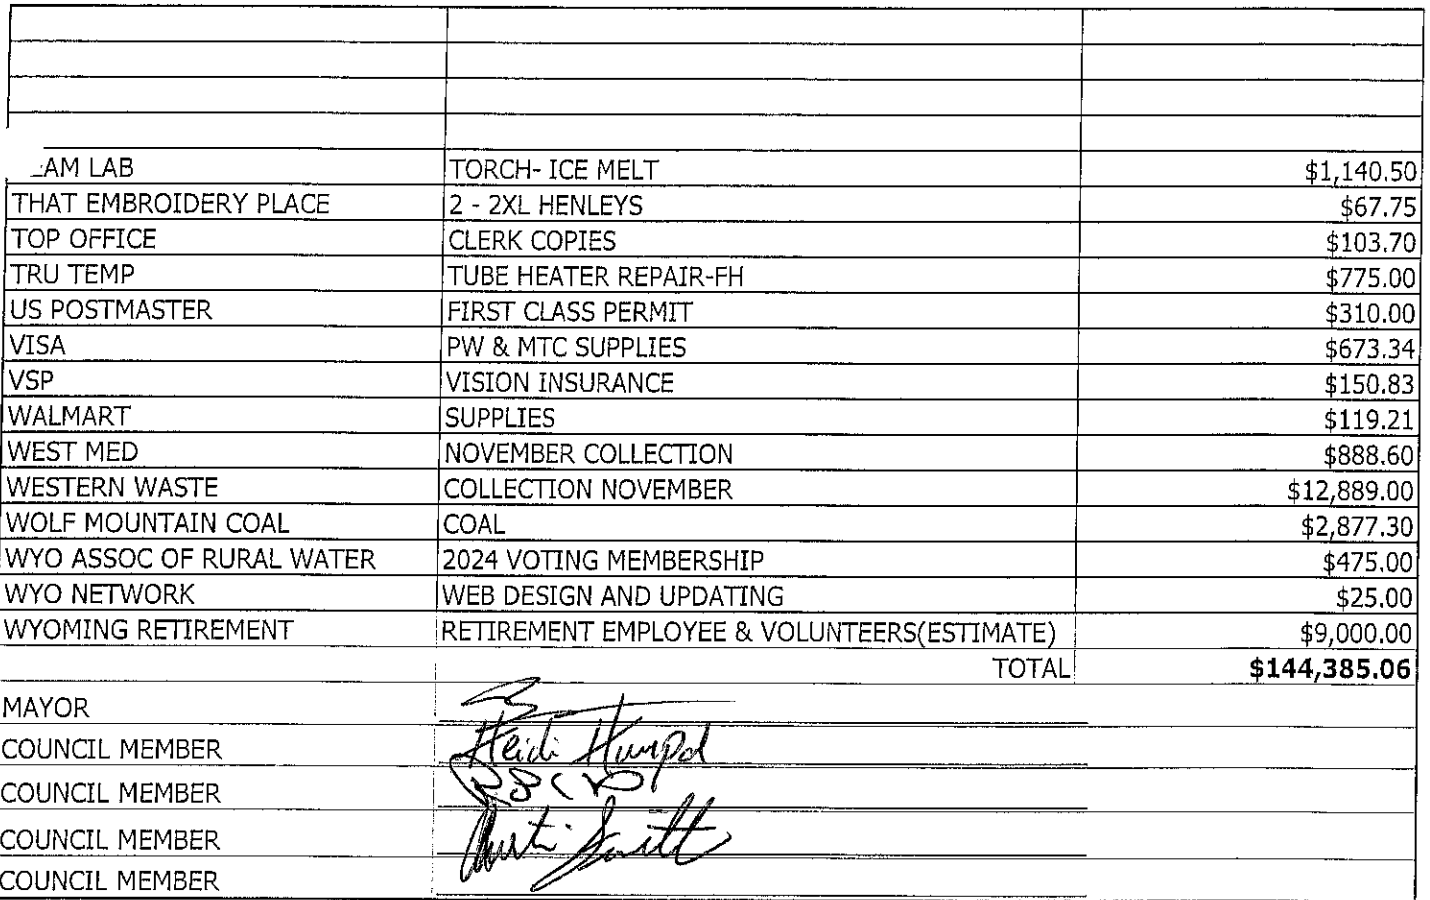 AM LAB TORCH- ICE MELT $1,140.50
THAT EMBROIDERY PLACE 2 - 2XL HENLEYS $67.75
TOP OFFICE CLERK COPIES $103.70
TRU TEMP TUBE HEATER REPAIR-FH $775.00
US POSTMASTER FIRST CLASS PERMIT $310.00
VISA PW & MTC SUPPLIES $673.34
VSP VISION INSURANCE $150.83
WALMART SUPPLIES $119.21
WEST MED NOVEMBER COLLECTION $888.60
WESTERN WASTE COLLECTION NOVEMBER $12,889.00
WOLF MOUNTAIN COAL COAL $2,877.30
WYO ASSOC OF RURAL WATER 2024 VOTING MEMBERSHIP $475.00
WYO NETWORK WEB DESIGN AND UPDATING $25.00
WYOMING RETIREMENT RETIREMENT EMPLOYEE & VOLUNTEERS(ESTIMATE) $9,000.00
TOTAL $144,385.06
MAYOR
COUNCIL MEMBER Heidi
COUNCIL MEMBER
COUNCIL MEMBER
COUNCIL MEMBER